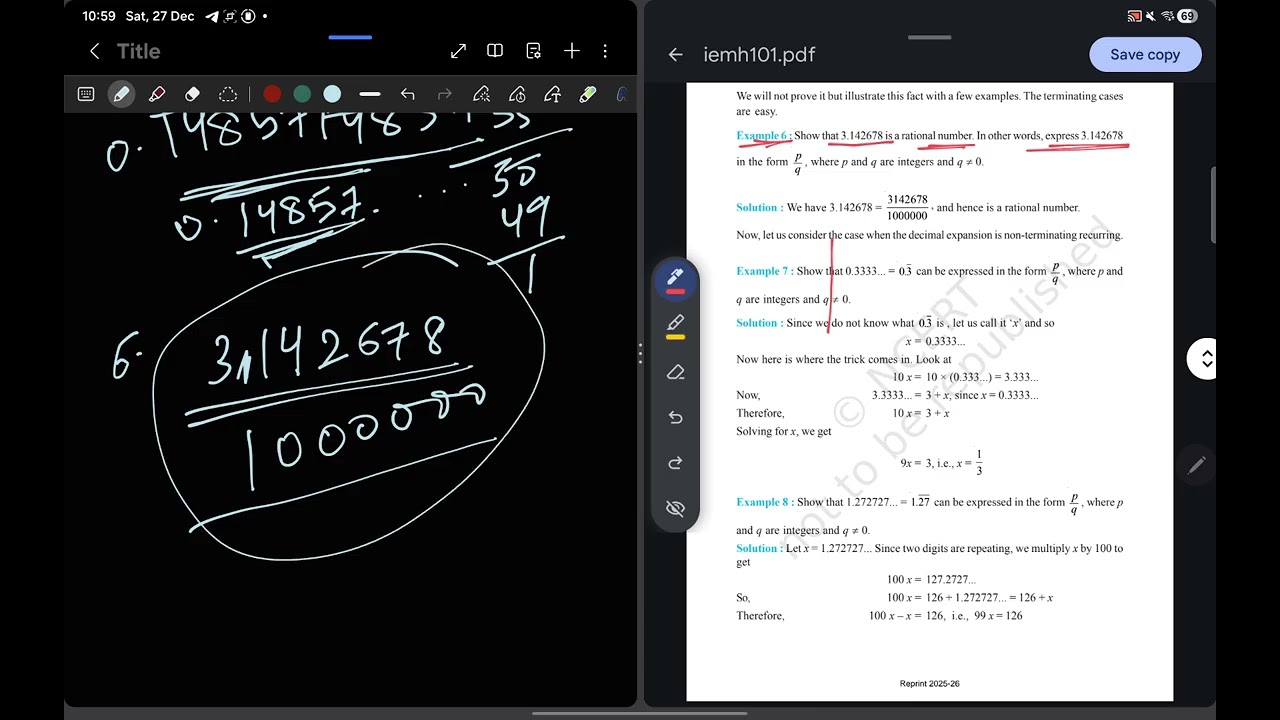 10:59 Sat, 27 Dec
69
Title
0.
35
30
0.14857. ...
49
1
6.
3,142678
1000000
iemh101.pdf
Save copy
We will not prove it but illustrate this fact with a few examples. The terminating cases
are easy.
Example 6 : Show that 3.142678 is a rational number. In other words, express 3.142678
in the form p/q, where p and q are integers and q ≠ 0.
Solution : We have 3.142678 = 3142678/1000000, and hence is a rational number.
Now, let us consider the case when the decimal expansion is non-terminating recurring.
Example 7 : Show that 0.3333... = 0.3̅ can be expressed in the form p/q, where p and
q are integers and q ≠ 0.
Solution : Since we do not know what 0.3̅ is , let us call it ‘x’ and so
x = 0.3333...
Now here is where the trick comes in. Look at
10 x = 10 × (0.333...) = 3.333...
Now, 3.3333... = 3 + x, since x = 0.3333...
Therefore, 10 x = 3 + x
Solving for x, we get
9x = 3, i.e., x = 1/3
Example 8 : Show that 1.272727... = 1.2̅7̅ can be expressed in the form p/q, where p
and q are integers and q ≠ 0.
Solution : Let x = 1.272727... Since two digits are repeating, we multiply x by 100 to
get
100 x = 127.2727...
So, 100 x = 126 + 1.272727... = 126 + x
Therefore, 100 x – x = 126, i.e., 99 x = 126
Reprint 2025-26
© NCERT
not to be republished